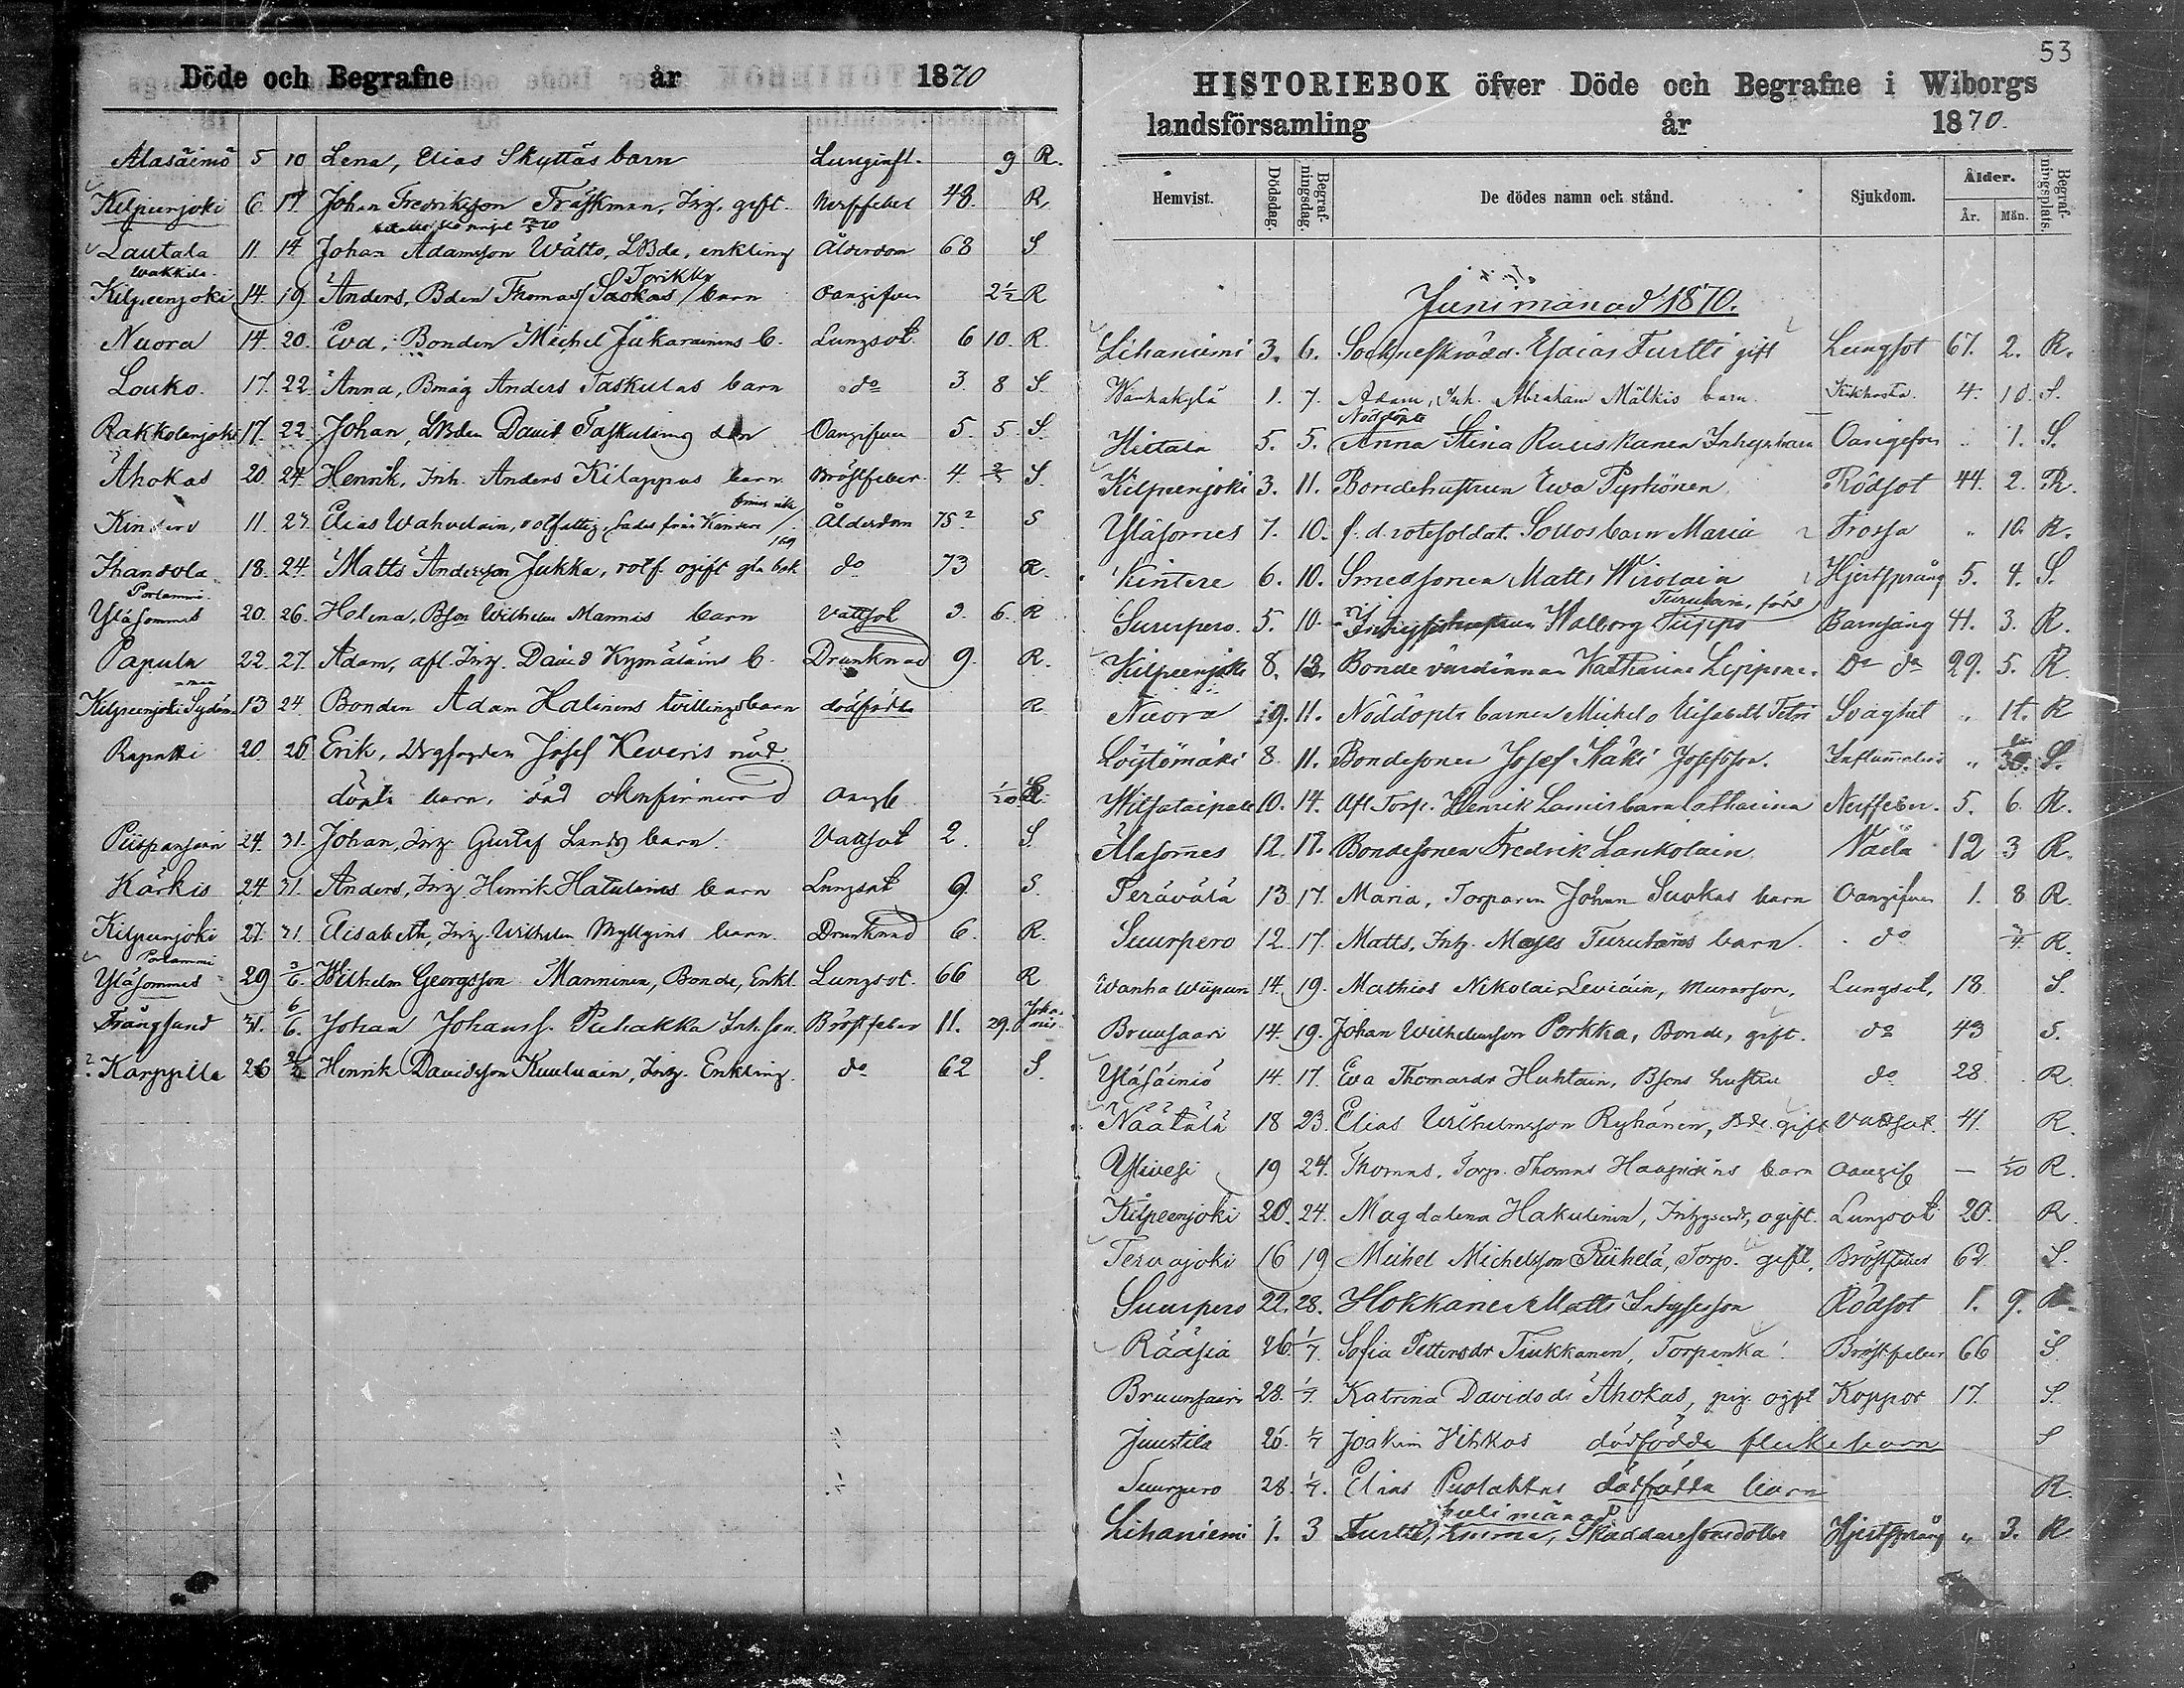 Döde och Begrafne år 1870
Alasäiniö 5 10 Lena, Elias Skyttäs barn Lunginfl. 9 R.
Kilpeenjoki 6 17. Johan Fredriksson Träskman, Inh. gift. Nerffeber 48. R.
Lautala 11. 14 Johan Adamsson Wätto, LBde, enkling Ålderdom 68 S
Wakkila
Torikka
Kilpeenjoki 14. 19. Anders, Bden Thomas /Suokas/ barn Oangifven 2½ R
Nuora 14. 20. Eva, Bonden Michel Jukarainens b. Lungsot 6 10. R.
Louko. 17. 22. Anna, Bmåg Anders Taskulas barn do 3. 8 S.
Rakkolanjoki 17. 22. Johan, LBden David Taskulains son Oangifven 5. 5. S.
Ahokas 20. 24. Henrik, Inh. Anders Kilappas barn Bröstfeber. 4. S.
Kintere 11. 27. Elias Wahvelain, rotfattig, Ålderdom 75? S
Ihantola 18. 24. Matts Andersson Jukka, rotf. ogift gla bok do 73 R.
Portammi.
Yläsommes 20. 26. Helena, Bson Wilhelm Mannis barn Vattsot 3. 6. R
Papula 22. 27. Adam, afl. Inh. David Kymäläins b. Drunknad 9. R.
Kilpeenjoki 13 24. Bonden Adam Halinens tvillingsbarn dödfödda R.
Rapatti 20. 26 Erik, Josef Keveris nöd
döpta barn, Oangif
24. 31. Johan, Inh. Gustaf barn. Vattsot 2. S.
Kärkis 24. 31. Anders, Inh. Henrik Hatulains barn Lungsot 9. S.
Kilpeenjoki 27. 31. Elisabeth, Inh. Wilhelm Myllyins barn. Drunknad 6. R.
Portammi
Yläsommes 29 3/6. Wilhelm Georgsson Manninen, Bonde, Enkl. Lungsot. 66 R
Trångsund 31. 6/6. Johan Johanss. Puhakka Inh. son. Bröstfeber 11. 29. Johannis
? Karppila 26 Henrik Davidsson Kuuluain, Inh. Enkling. do 62 S.
53
HISTORIEBOK öfver Döde och Begrafne i Wiborgs
landsförsamling år 1870.
Hemvist. Dödsdag. Begrafningsdag. De dödes namn och stånd. Sjukdom. Ålder. Begrafningsplats
År. Mån.
Juni månad 1870.
Lihaniemi 3. 6. Sockneskrädd. Esaias Turtti gift Lungsot 67. 2. R.
Wanhakylä 1. 7. Adam, Inh. Abraham Mälkis barn. Kikhosta. 4. 10. S.
Nöddöpta
Hietala 5. 5. Anna Stina Ruuskanen Inhys barn Oangifven „ 1. S.
Kilpeenjoki 3. 11. Bondehustrun Ewa Pyrhönen. Rödsot 44. 2. R.
Yläsomes 7. 10. f.d. rotesoldat. barn Maria Trossa „ 10. R.
Kintere 6. 10. Smedsonen Matts Wirolain Hjertsprång 5. 4. S.
Turulain, född
Suurpero. 5. 10. Inhyseshustrun Walborg Tuppo Barnsäng 41. 3. R.
Kilpeenjoki 8. 13. Bonde värdinnan Katharina Lipponen. Do do 29. 5. R.
Nuora 9. 11. Nöddöpta barnen Michel o Elisabeth Tetri Svaghet „ 1t. R
Löytömäki 8. 11. Bondesonen Josef Mäki Josefsson. Inflammation „ 30. S.
Wilsataipale 10. 14. Afl. Torp. Henrik barn Catharina Nerffeber. 5. 6 R.
Alasomes 12. 17. Bondesonen Fredrik Lankolain. Våda 12 3 R.
Terävälä 13. 17. Maria, Torparen Johan Suokas barn Oangifven 1. 8 R.
Suurpero 12. 17. Matts, Inh. Moyes Turulains barn. do ¾ R.
Wanha Wiipuri 14. 19. Mathias Nikolai Leviäin, Murarson, Lungsot, 18. S.
Bruusaari 14. 19. Johan Wilhelmsson Porkka, Bonde, gift. do 43 S.
Yläsäiniö 14. 17. Eva Thomasdr Huhtain, Bsons hustru do 28 R.
Näätälä 18 23. Elias Wilhelmsson Ryhänen, Bde. gift Vattsot. 41. R.
Ylivesi 19 24. Thomas, Torp. Thomas barn Oangif — 1/20 R.
Kilpeenjoki 20. 24. Magdalena Hakulinen, ogift. Lungsot 20. R.
Tervajoki 16 19 Michel Michelsson Riihelä, Torp. gift. Bröstfeber 62. S.
Suurpero 22. 28. Hokkanen Matts Inhysesson Rödsot 1. 9. R.
Rääsiä 26. 1/7. Sofia Pettersdr Tiukkanen, Torpenka. Bröstfeber 66 S.
Bruunsaari 28. 1/7. Katrina Davidsdr Ahokas, pig. ogift Koppor 17. S.
Juustila 26. 1/7 Joakim Vihkos dödfödda flickebarn S
Suurpero 28. 1/7. Elias Puolakkas dödfödda barn R.
Juli månad
Lihaniemi 1. 3 Turtti, Emma, Skräddaresonsdotter Hjertsprång „ 3. R.